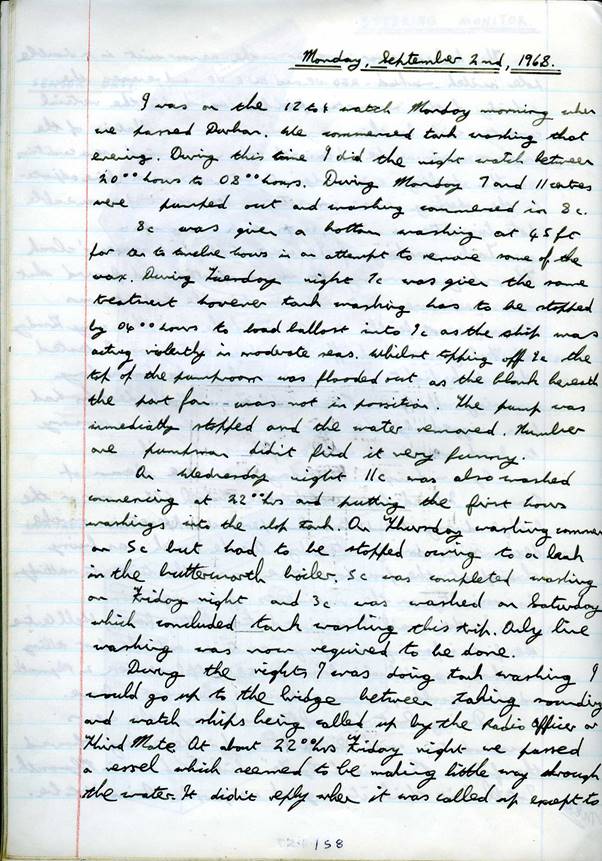 Monday, September 2nd, 1968.
I was on the 12 to 4 watch Monday morning when
we passed Durban. We commenced tank washing that
evening. During this time I did the night watch between
20°° hours to 08°° hours. During Monday 7 and 11 centres
were pumped out and washing commenced in 8c.
8c was given a bottom washing at 45 ft
for ten to twelve hours in an attempt to remove some of the
wax. During Tuesday night 7c was given the same
treatment however tank washing has to be stopped
by 04°° hours to load ballast into 9c as the ship was
acting violently in moderate seas. Whilst topping off 9c the
top of the pumproom was flooded out as the blank beneath
the port fan was not in possition. The pump was
immediatly stopped and the water removed. Number
one pumpman didn't find it very funny.
On Wednesday night 11c was also washed
commencing at 22°° hrs and putting the first hours
washings into the slop tank. On Thursday washing commen
on 5c but had to be stopped owing to a leak
in the butterworth boiler. 5c was completed washing
on Friday night and 3c was washed on Saturday
which concluded tank washing this trip. Only line
washing was now required to be done.
During the nights I was doing tank washing I
would go up to the bridge between taking sounding
and watch ships being called up by the Radio Officer or
Third Mate. At about 22°° hrs Friday night we passed
a vessel which seemed to be making little way through
the water. It didn't reply when it was called up except to
158